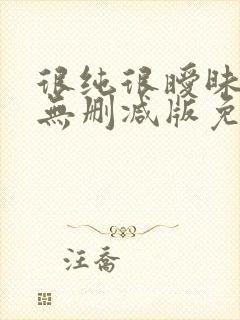 很纯很暧昧
無删减版免
汪喬